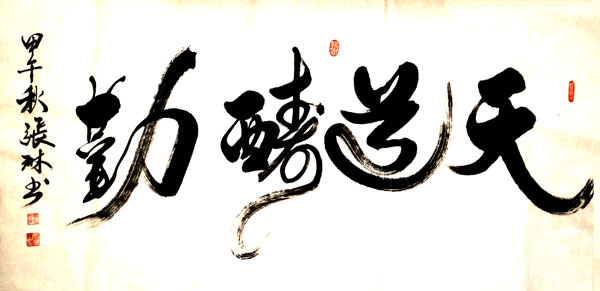 天道酬勤
甲午秋張琳书